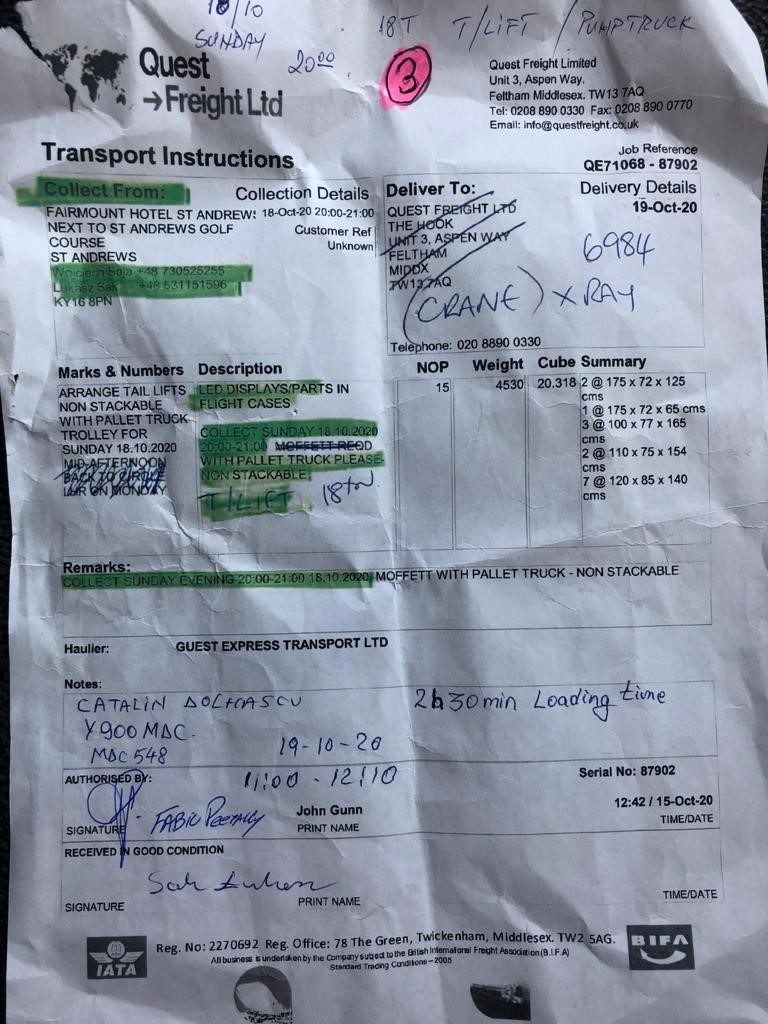 18/10 18T T/LIFT / PUMPTRUCK
SUNDAY 20:00
3
Quest
→Freight Ltd
Quest Freight Limited
Unit 3, Aspen Way.
Feltham Middlesex. TW13 7AQ
Tel: 0208 890 0330 Fax: 0208 890 0770
Email: info@questfreight.co.uk
Transport Instructions
Job Reference
QE71068 - 87902
Collect From: Collection Details
FAIRMOUNT HOTEL ST ANDREWS 18-Oct-20 20:00-21:00
NEXT TO ST ANDREWS GOLF Customer Ref
COURSE Unknown
ST ANDREWS
Wojciech Soja +48 730525255
Lukasz Sak +48 531151596
KY16 8PN
Deliver To: Delivery Details
QUEST FREIGHT LTD 19-Oct-20
THE HOOK
UNIT 3, ASPEN WAY
FELTHAM 6984
MIDDX
TW13 7AQ
(CRANE) X RAY
Telephone: 020 8890 0330
Marks & Numbers Description NOP Weight Cube Summary
ARRANGE TAIL LIFTS
NON STACKABLE
WITH PALLET TRUCK
TROLLEY FOR
SUNDAY 18.10.2020
MID-AFTERNOON
BACK TO
LHR ON MONDAY
LED DISPLAYS/PARTS IN
FLIGHT CASES
COLLECT SUNDAY 18.10.2020
20:00-21:00 MOFFETT REQD
WITH PALLET TRUCK PLEASE-
NON STACKABLE
T/LIFT 18ton
15 4530 20.318
2 @ 175 x 72 x 125
cms
1 @ 175 x 72 x 65 cms
3 @ 100 x 77 x 165
cms
2 @ 110 x 75 x 154
cms
7 @ 120 x 85 x 140
cms
Remarks:
COLLECT SUNDAY EVENING 20:00-21:00 18.10.2020 MOFFETT WITH PALLET TRUCK - NON STACKABLE
Haulier: GUEST EXPRESS TRANSPORT LTD
Notes:
CATALIN 2h30min Loading time
Y900 MDC.
MDC 548 19-10-20
11:00 - 12:10
AUTHORISED BY: Serial No: 87902
John Gunn 12:42 / 15-Oct-20
SIGNATURE PRINT NAME TIME/DATE
RECEIVED IN GOOD CONDITION
SIGNATURE PRINT NAME TIME/DATE
IATA
Reg. No: 2270692 Reg. Office: 78 The Green, Twickenham, Middlesex. TW2 5AG.
All business is undertaken by the Company subject to the British International Freight Association (B.I.F.A)
Standard Trading Conditions – 2005
BIFA